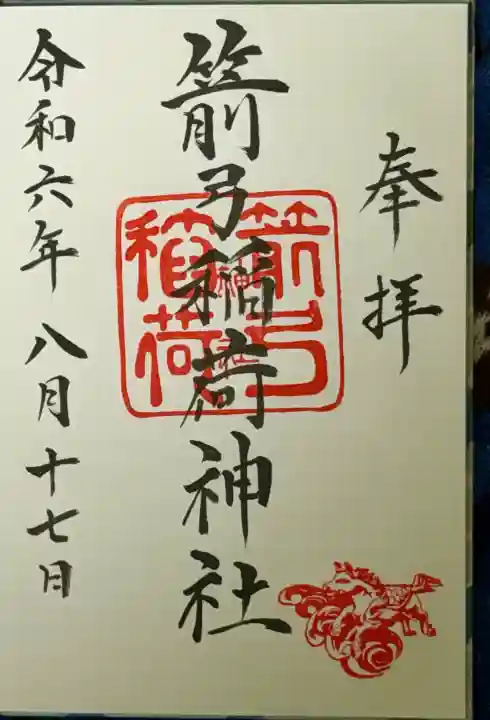 奉拝
箭弓稲荷神社
箭弓
稲荷
神社
令和六年八月十七日